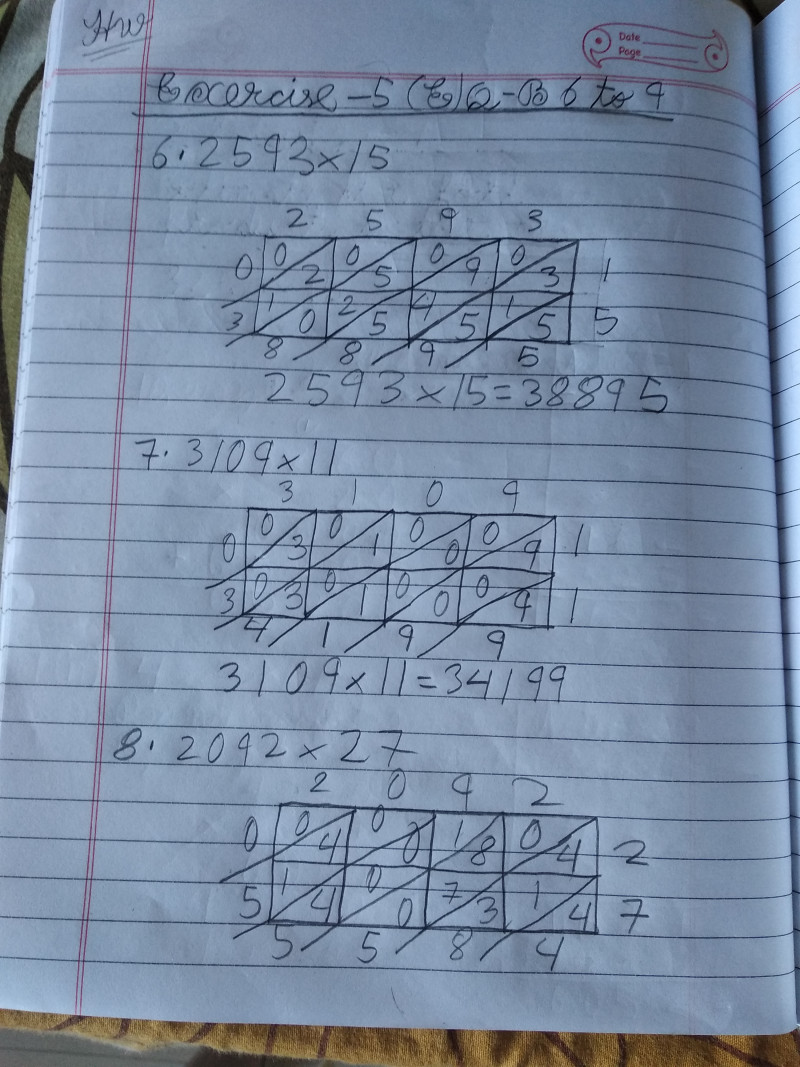 HW
Date
Page
Exercise -5 (E) Q-B 6 to 9
6. 2593×15
2 5 9 3
0 0 2 0 5 0 9 0 3 1
3 1 0 2 5 4 5 1 5 5
8 8 9 5
2593×15=38895
7. 3109×11
3 1 0 9
0 0 3 0 1 0 0 0 9 1
3 0 3 0 1 0 0 0 9 1
4 1 9 9
3109×11=34199
8. 2092×27
2 0 9 2
0 0 4 0 0 1 8 0 4 2
5 1 4 0 0 7 3 1 4 7
5 5 8 4